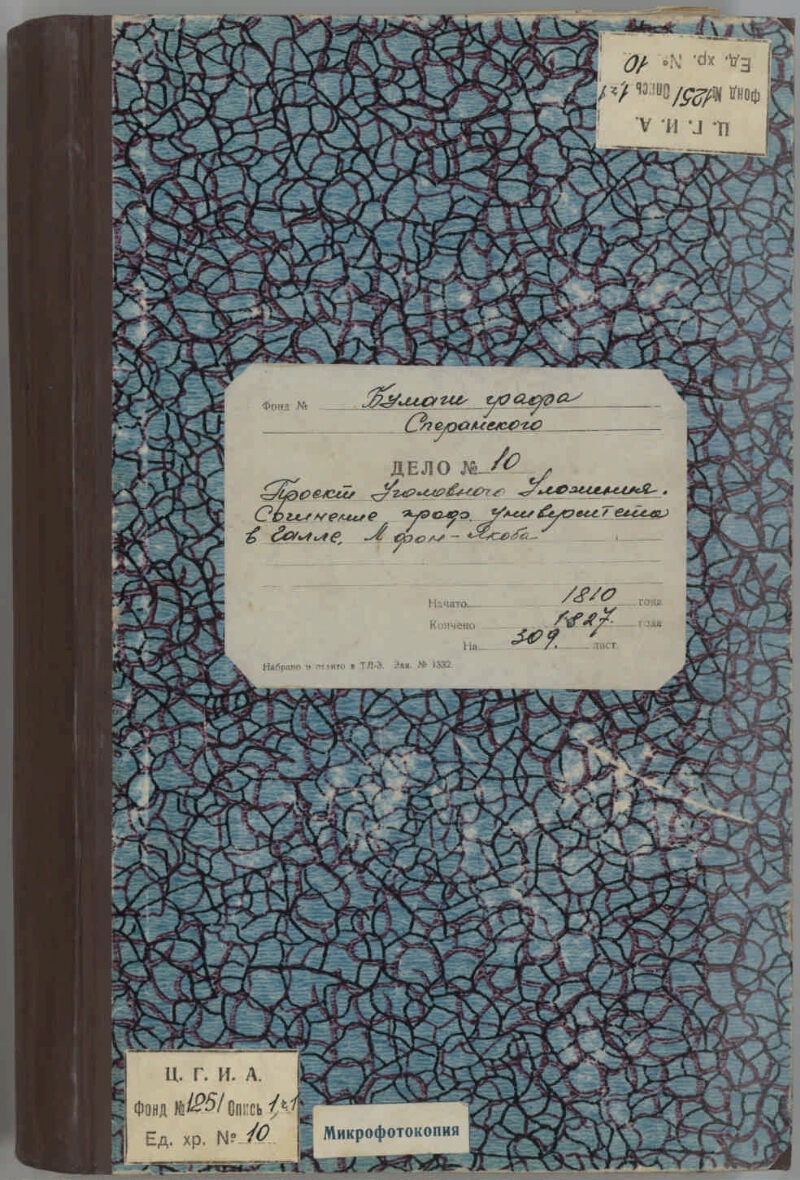 Ц. Г. И. А.
Фонд № 1251 Опись 1 ч 1
Ед. хр. № 10
Фонд № Бумаги графа
Сперанского
ДЕЛО № 10
Проект Уголовного Уложения.
Сочинение проф. университета
в Галле, Л фон-Якоба
Начато 1810 года
Кончено 1827. года
На 309. лист.
Набрано и отлито в ТЛ-3. Зак. № 1332.
Ц. Г. И. А.
Фонд № 1251 Опись 1 ч 1
Ед. хр. № 10
Микрофотокопия